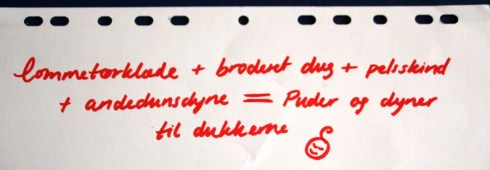 lommetørklæde + broderet dug + pelsskind
+ andedunsdyne = Puder og dyner
til dukkerne